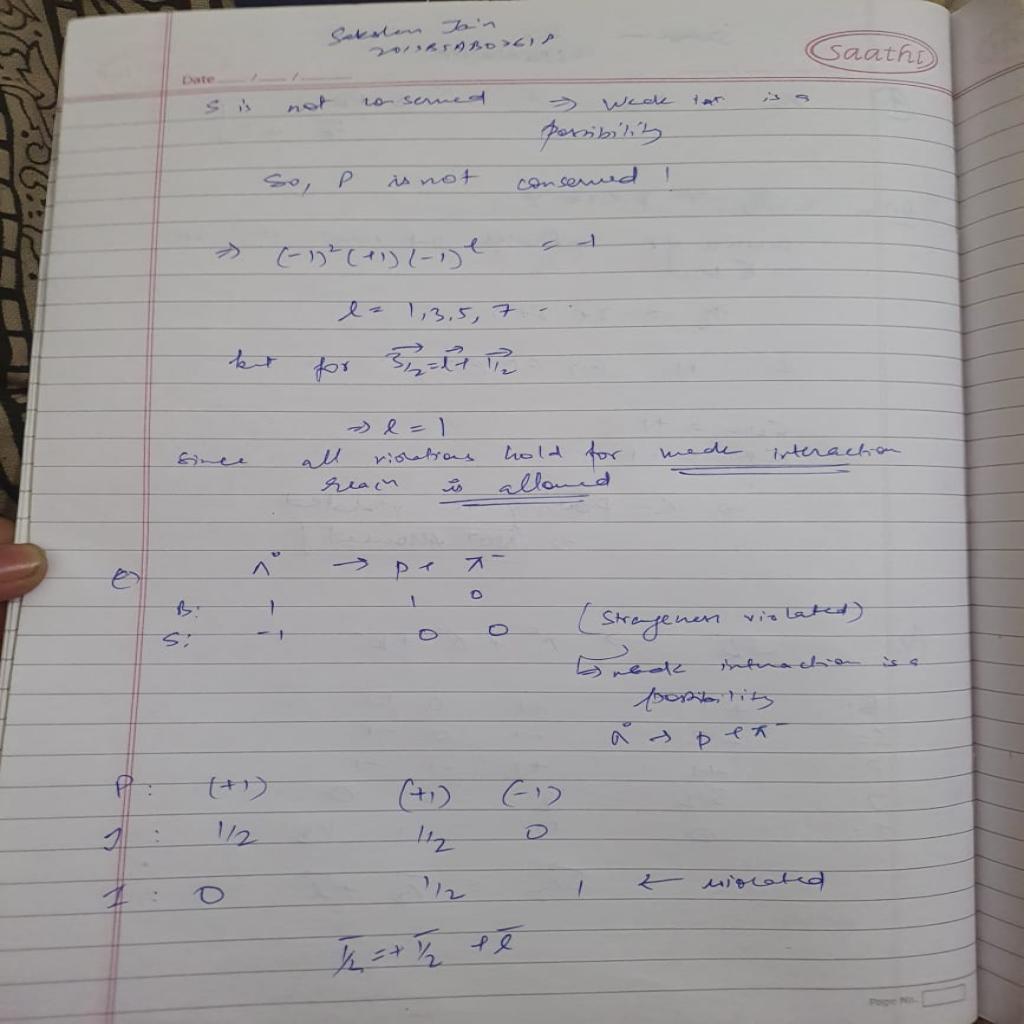 Jain
Saathi
Date
S is not conserved ⇒ Weak int is a
possibility
So, P is not conserved!
⇒ (-1)² (+1) (-1)^l = -1
l = 1, 3, 5, 7 - ..
but for 3/2 = l + 1/2
⇒ l = 1
since all violations hold for weak interaction
is allowed
e) Λ° → p + π⁻
B: 1 1 0
S: -1 0 0 (Strangeness violated)
↳ weak interaction is a
possibility
Λ° → p + π⁻
P : (+1) (+1) (-1)
J : 1/2 1/2 0
I : 0 1/2 1 ← violated
1/2 = + 1/2 + l
Page No.